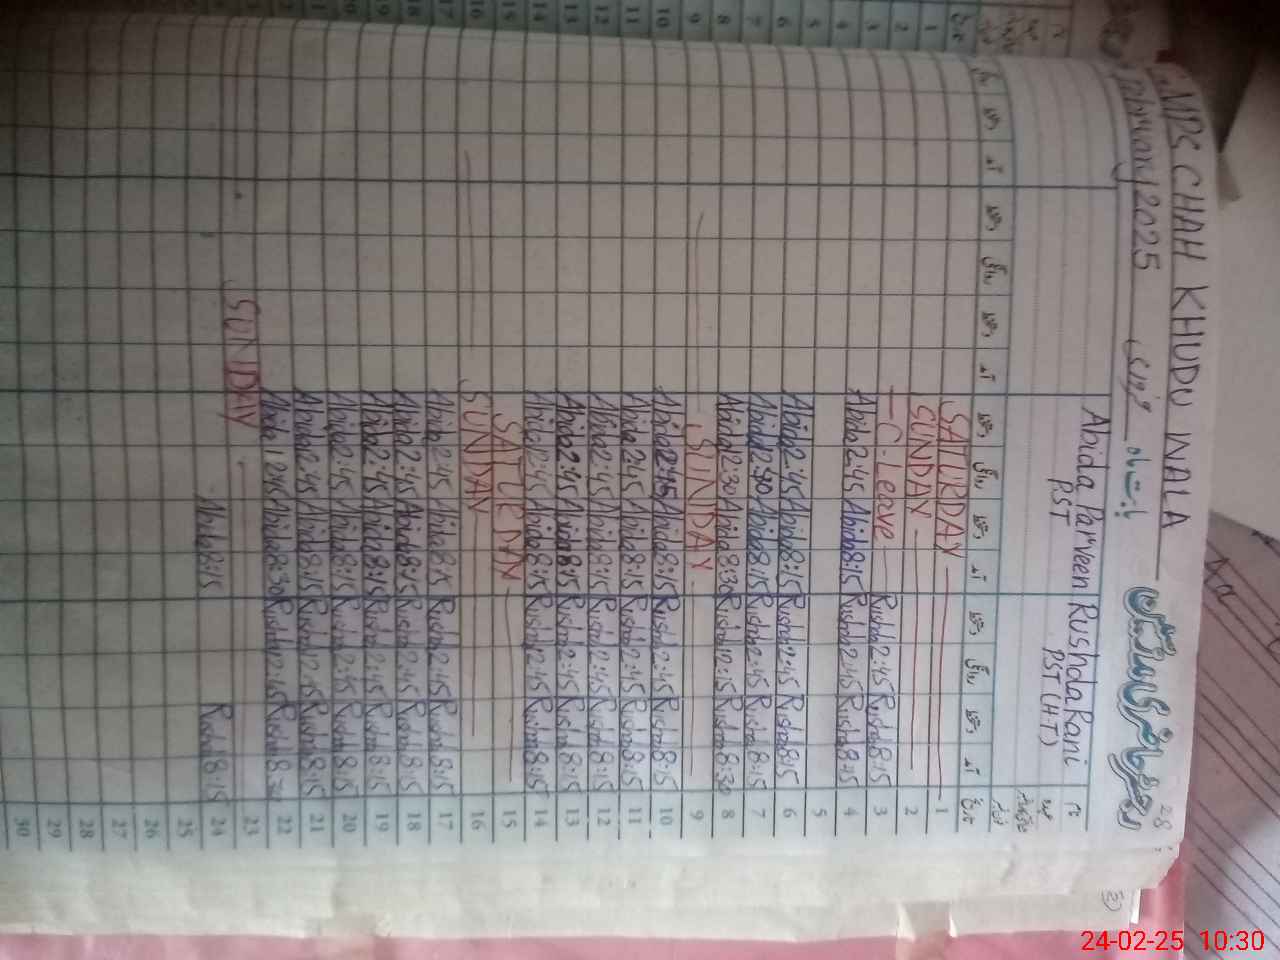 28
GMPS CHAH KHUDU WALA رجسٹر حاضری اساتذہ
February 2025 بابت ماہ
نام Rushda Rani Abida Parveen
عہدہ PST (H-T) PST
تاریخ آمد دستخط روانگی دستخط آمد دستخط روانگی دستخط آمد دستخط روانگی دستخط
1 SATURDAY
2 SUNDAY
3 Rushda 8:15 Rushda 2:45 C-Leave
4 Rushda 8:15 Rushda 2:45 Abida 8:15 Abida 2:45
5
6 Rushda 8:15 Rushda 2:45 Abida 8:15 Abida 2:45
7 Rushda 8:15 Rushda 2:45 Abida 8:15 Abida 12:30
8 Rushda 8:30 Rushda 12:15 Abida 8:30 Abida 12:30
9 SUNDAY
10 Rushda 8:15 Rushda 2:45 Abida 8:15 Abida 2:45
11 Rushda 8:15 Rushda 2:45 Abida 8:15 Abida 2:45
12 Rushda 8:15 Rushda 2:45 Abida 8:15 Abida 2:45
13 Rushda 8:15 Rushda 2:45 Abida 8:15 Abida 2:45
14 Rushda 8:15 Rushda 12:45 Abida 8:15 Abida 12:45
15 SATURDAY
16 SUNDAY
17 Rushda 8:15 Rushda 2:45 Abida 8:15 Abida 2:45
18 Rushda 8:15 Rushda 2:45 Abida 8:15 Abida 2:45
19 Rushda 8:15 Rushda 2:45 Abida 8:15 Abida 2:45
20 Rushda 8:15 Rushda 2:45 Abida 8:15 Abida 2:45
21 Rushda 8:15 Rushda 12:15 Abida 8:15 Abida 2:45
22 Rushda 8:30 Rushda 12:45 Abida 8:30 Abida 12:45
23 SUNDAY
24 Rushda 8:15 Abida 8:15
25
26
27
28
29
30
24-02-25 10:30